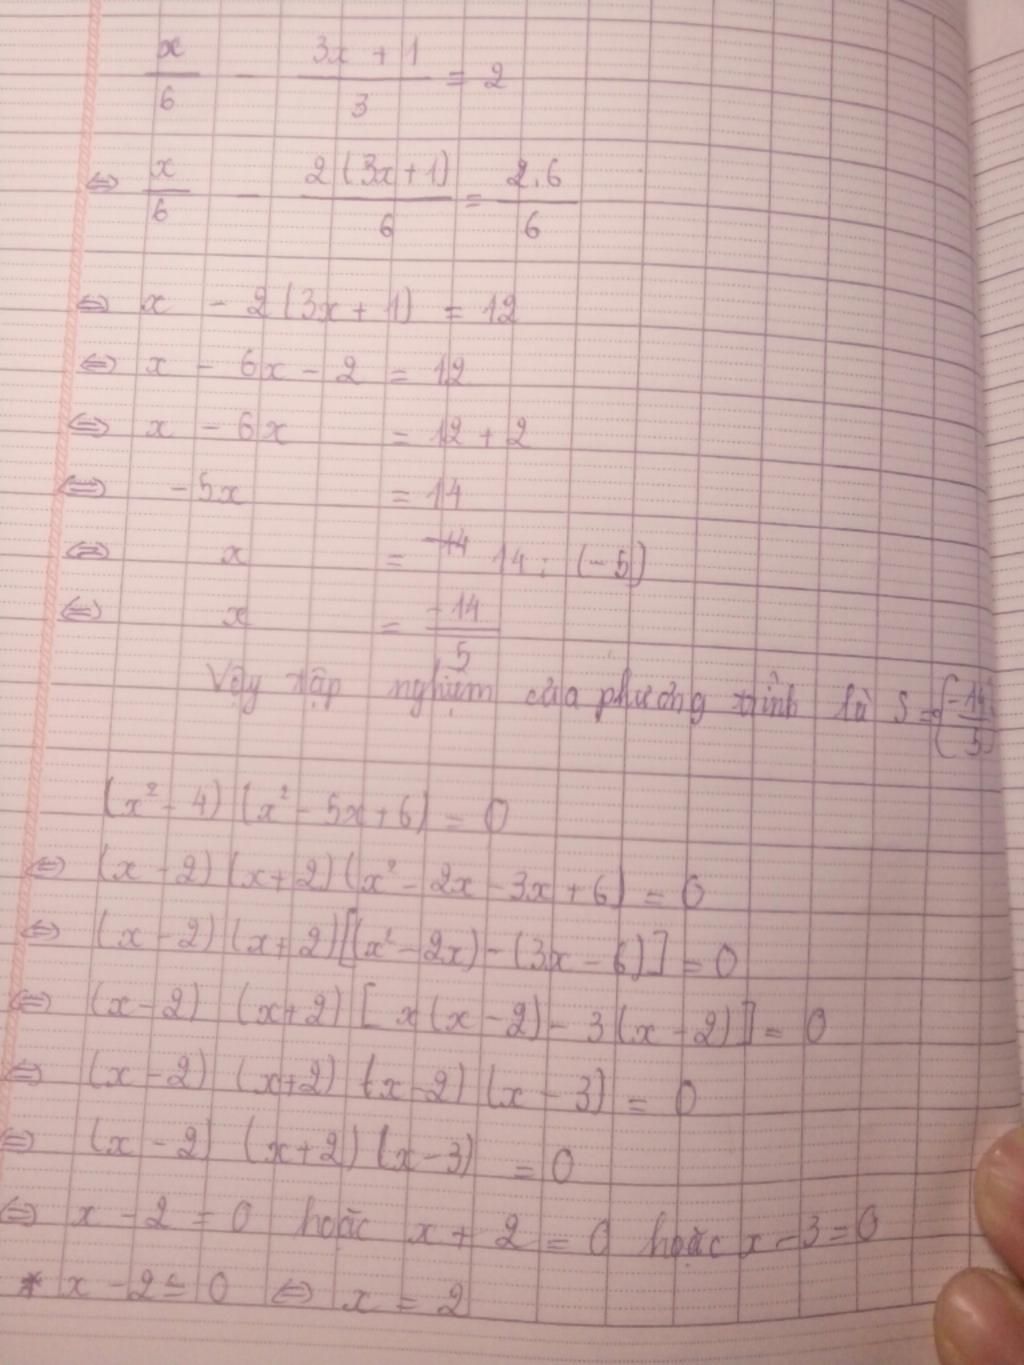 x/6 - (3x + 1)/3 = 2
⇔ x/6 - 2(3x+1)/6 = 2.6/6
⇔ x - 2(3x + 1) = 12
⇔ x - 6x - 2 = 12
⇔ x - 6x = 12 + 2
⇔ -5x = 14
⇔ x = 14 : (-5)
⇔ x = -14/5
Vậy tập nghiệm của phương trình là S = {-14/5}
(x² - 4) (x² - 5x + 6) = 0
⇔ (x - 2) (x + 2) (x² - 2x - 3x + 6) = 0
⇔ (x - 2) (x + 2) [(x² - 2x) - (3x - 6)] = 0
⇔ (x - 2) (x + 2) [x(x - 2) - 3(x - 2)] = 0
⇔ (x - 2) (x + 2) (x - 2) (x - 3) = 0
⇔ (x - 2) (x + 2) (x - 3) = 0
⇔ x - 2 = 0 hoặc x + 2 = 0 hoặc x - 3 = 0
* x - 2 = 0 ⇔ x = 2